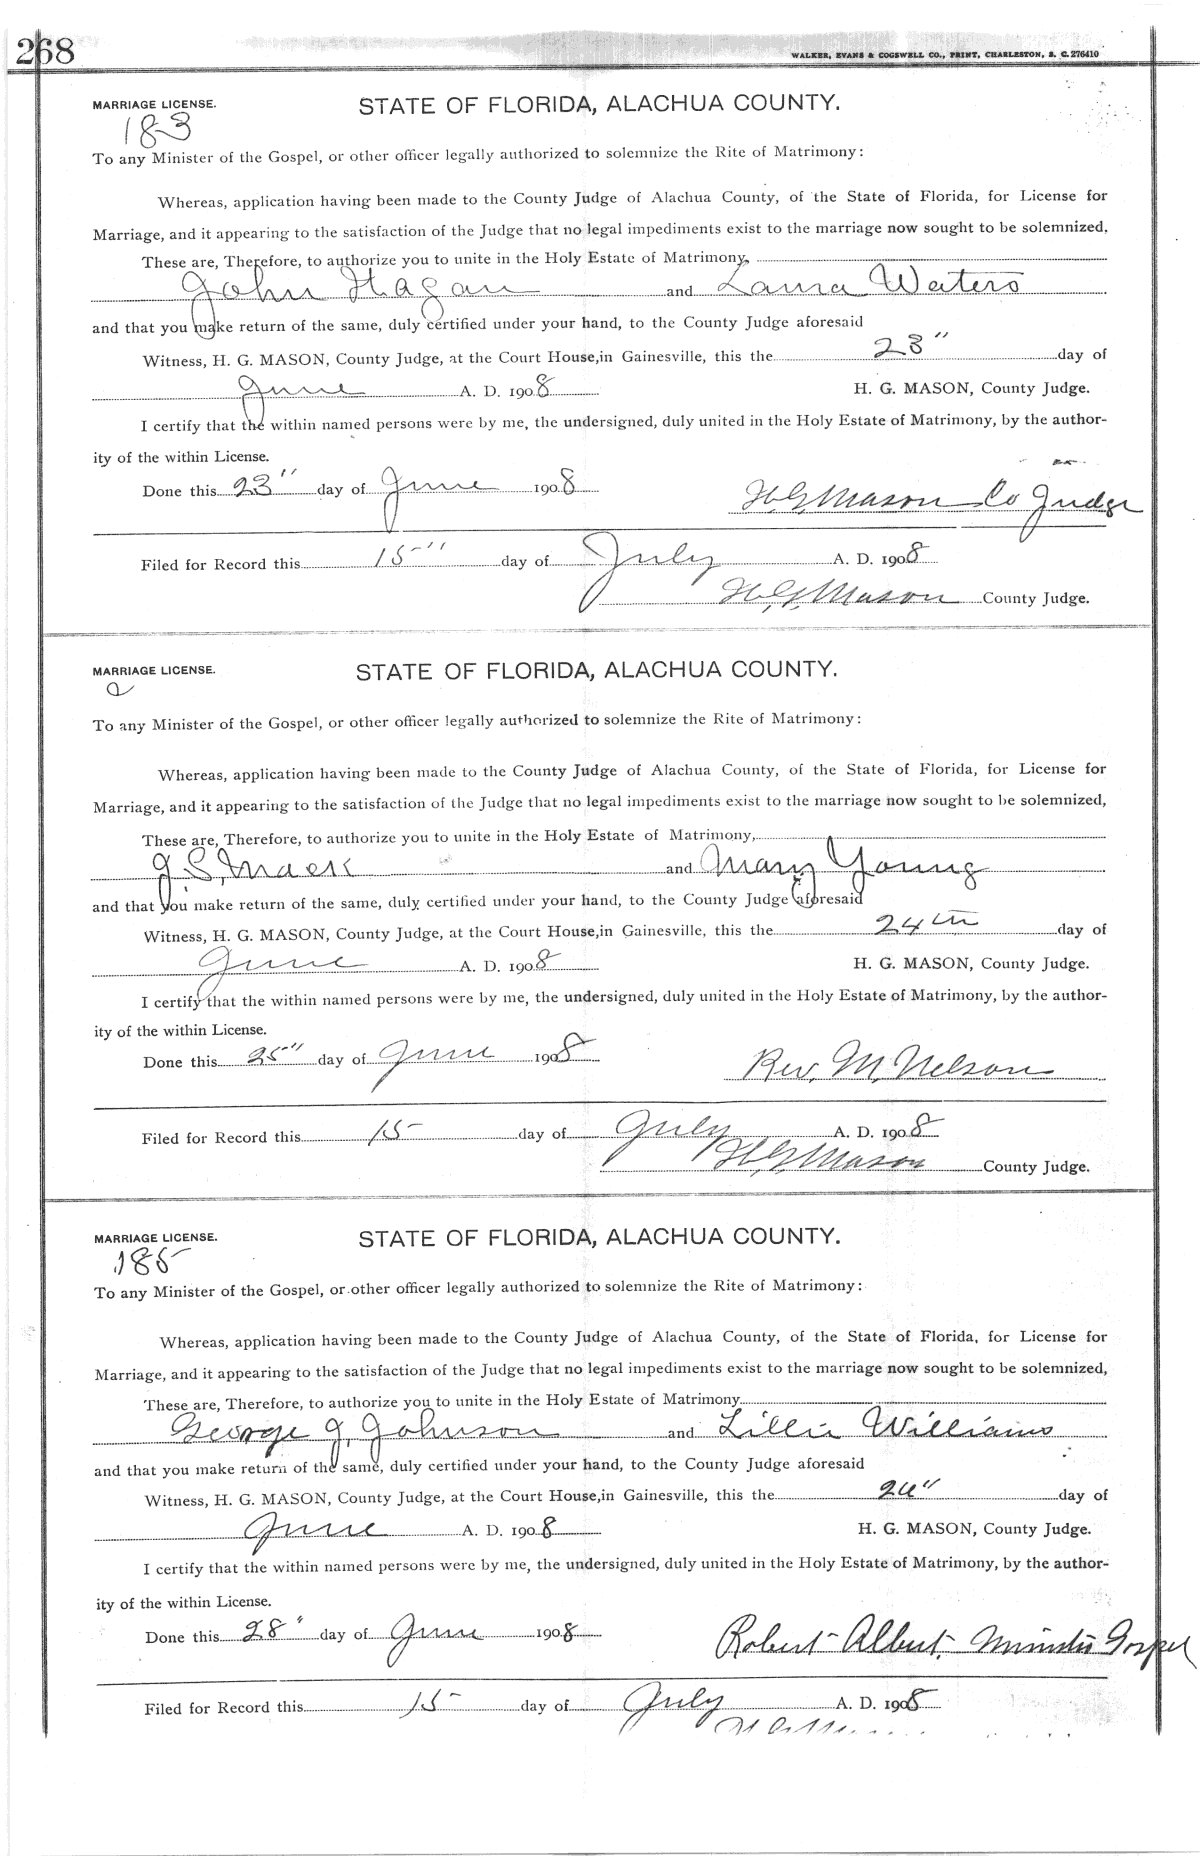 268
WALKER, EVANS & COGSWELL CO., PRINT, CHARLESTON, S. C. 276410
MARRIAGE LICENSE. STATE OF FLORIDA, ALACHUA COUNTY.
183
To any Minister of the Gospel, or other officer legally authorized to solemnize the Rite of Matrimony:
Whereas, application having been made to the County Judge of Alachua County, of the State of Florida, for License for
Marriage, and it appearing to the satisfaction of the Judge that no legal impediments exist to the marriage now sought to be solemnized,
These are, Therefore, to authorize you to unite in the Holy Estate of Matrimony,
John Hagan and Laura Waters
and that you make return of the same, duly certified under your hand, to the County Judge aforesaid
Witness, H. G. MASON, County Judge, at the Court House, in Gainesville, this the 23" day of
June A. D. 1908 H. G. MASON, County Judge.
I certify that the within named persons were by me, the undersigned, duly united in the Holy Estate of Matrimony, by the author-
ity of the within License.
Done this 23" day of June 1908 H. G. Mason Co Judge
Filed for Record this 15" day of July A. D. 1908
H. G. Mason County Judge.
MARRIAGE LICENSE. STATE OF FLORIDA, ALACHUA COUNTY.
To any Minister of the Gospel, or other officer legally authorized to solemnize the Rite of Matrimony:
Whereas, application having been made to the County Judge of Alachua County, of the State of Florida, for License for
Marriage, and it appearing to the satisfaction of the Judge that no legal impediments exist to the marriage now sought to be solemnized,
These are, Therefore, to authorize you to unite in the Holy Estate of Matrimony,
J. S. Mack and Mary Young
and that you make return of the same, duly certified under your hand, to the County Judge aforesaid
Witness, H. G. MASON, County Judge, at the Court House, in Gainesville, this the 24th day of
June A. D. 1908 H. G. MASON, County Judge.
I certify that the within named persons were by me, the undersigned, duly united in the Holy Estate of Matrimony, by the author-
ity of the within License.
Done this 25" day of June 1908 Rev. M. Nelson
Filed for Record this 15 day of July A. D. 1908
H. G. Mason County Judge.
MARRIAGE LICENSE. STATE OF FLORIDA, ALACHUA COUNTY.
185
To any Minister of the Gospel, or other officer legally authorized to solemnize the Rite of Matrimony:
Whereas, application having been made to the County Judge of Alachua County, of the State of Florida, for License for
Marriage, and it appearing to the satisfaction of the Judge that no legal impediments exist to the marriage now sought to be solemnized,
These are, Therefore, to authorize you to unite in the Holy Estate of Matrimony
George J. Johnson and Lillie Williams
and that you make return of the same, duly certified under your hand, to the County Judge aforesaid
Witness, H. G. MASON, County Judge, at the Court House, in Gainesville, this the day of
June A. D. 1908 H. G. MASON, County Judge.
I certify that the within named persons were by me, the undersigned, duly united in the Holy Estate of Matrimony, by the author-
ity of the within License.
Done this 28" day of June 1908 Robert Albert, Minister Gospel
Filed for Record this 15 day of July A. D. 1908